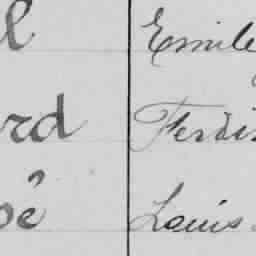 l Emile
rd Ferdi
bê Louis